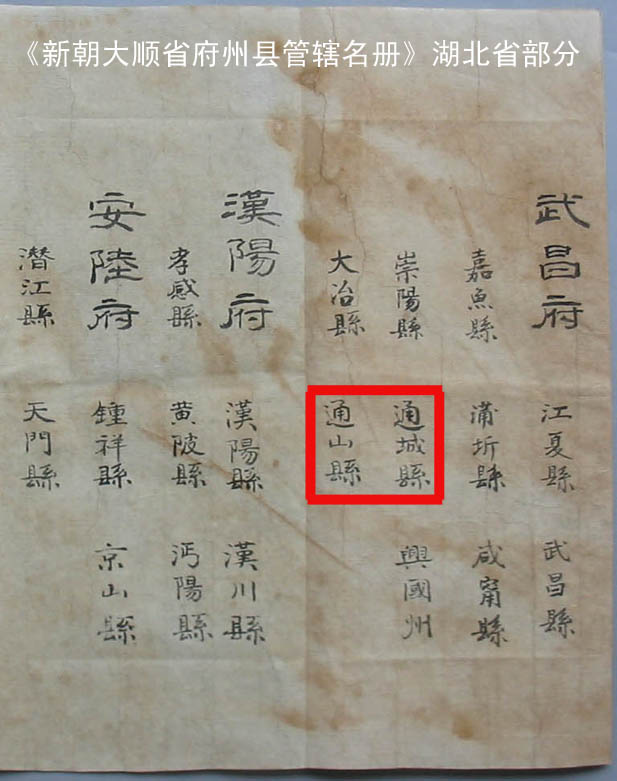 《新朝大顺省府州县管辖名册》湖北省部分
武昌府 江夏縣 武昌縣
嘉魚縣 蒲圻縣 咸甯縣
崇陽縣 通城縣 興國州
大冶縣 通山縣
漢陽府 漢陽縣 漢川縣
孝感縣 黄陂縣 沔陽縣
安陸府 鍾祥縣 京山縣
潛江縣 天門縣